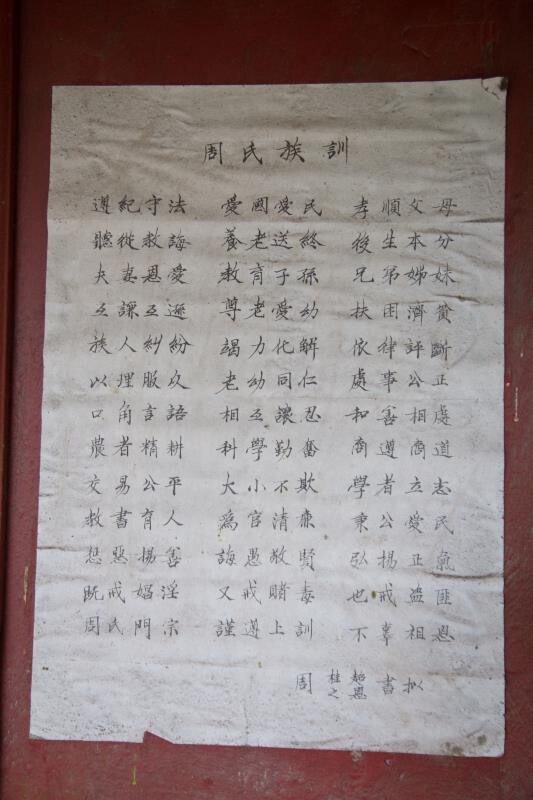 周氏族訓
遵紀守法 愛國愛民 孝順父母
聽從教誨 養老送終 後生本分
夫妻恩愛 教育子孫 兄弟姊妹
互謙互遜 尊老愛幼 扶困濟貧
族人糾紛 竭力化解 依律評斷
以理服众 老幼同仁 處事公正
口角言語 相互讓忍 和善相處
農者精耕 科學勤奮 商遵商道
交易公平 大小不欺 學者立志
教書育人 爲官清廉 秉公愛民
懲惡揚善 誨愚敬賢 弘揚正氣
既戒娼淫 又戒賭毒 也戒盗匪
周氏門宗 謹遵上訓 不辜祖恩
周 桂之 超恩 書 拟